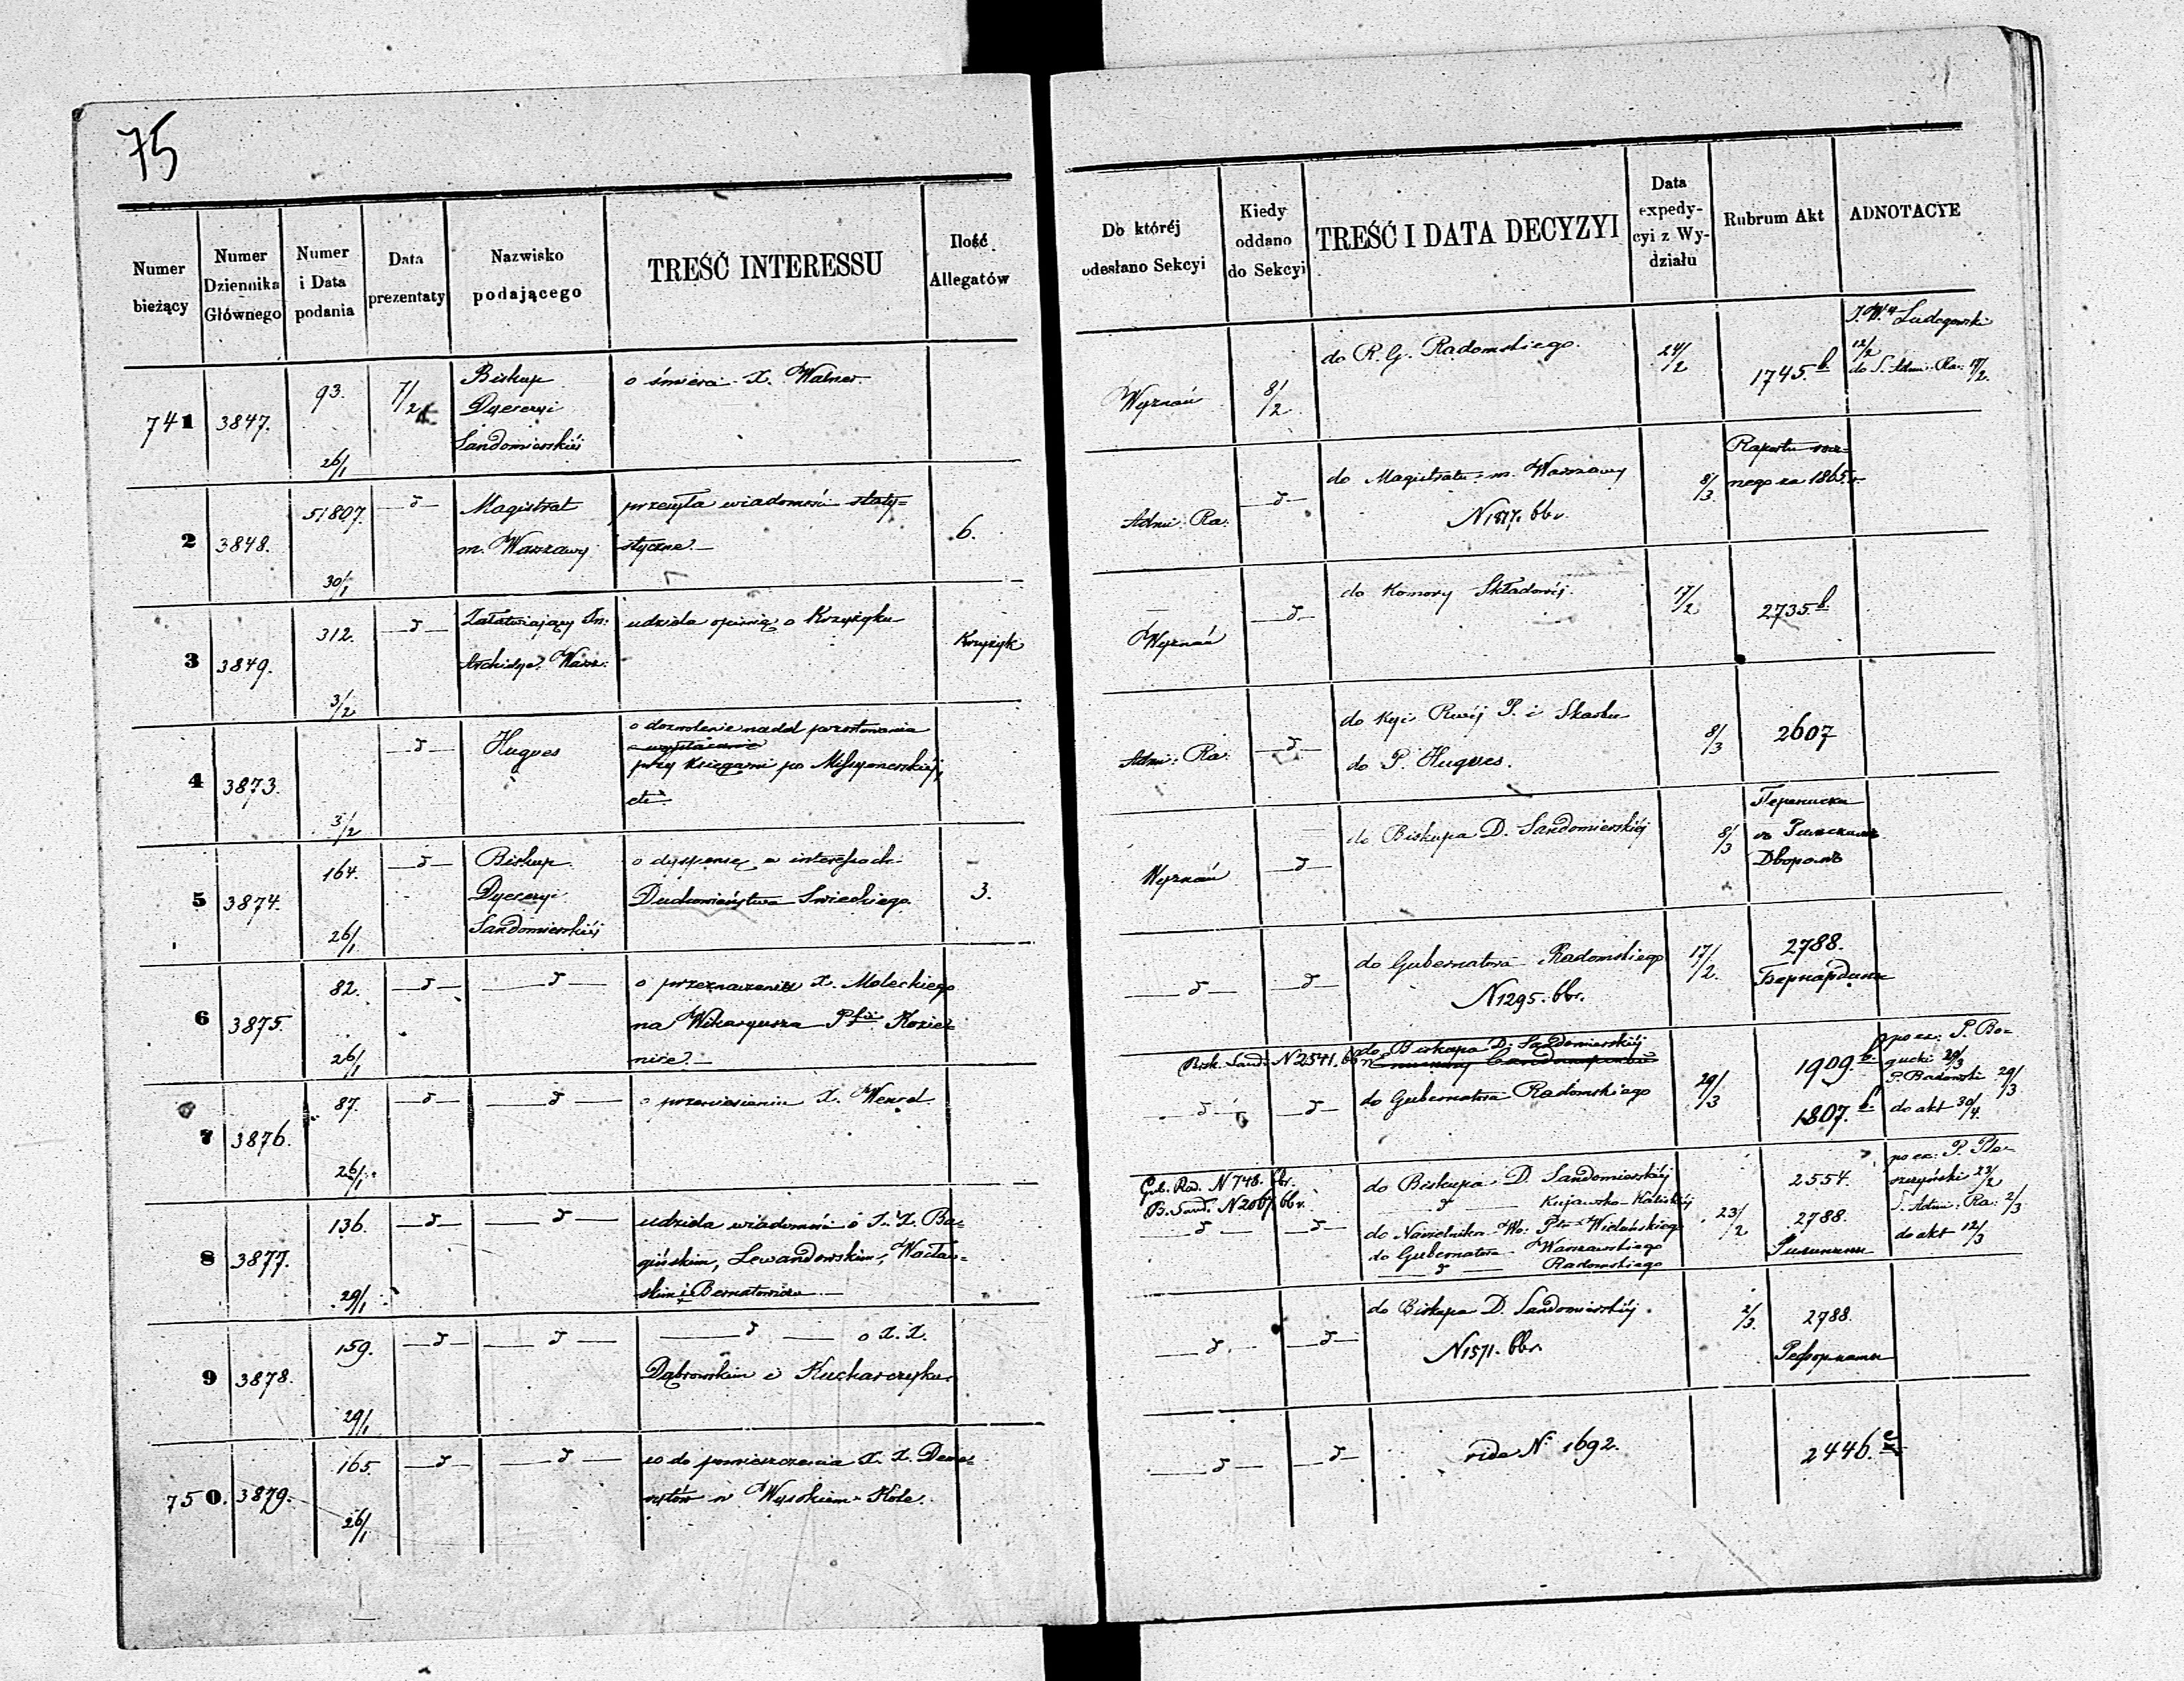 75
Numer bieżący
Numer Dziennika Głównego
Numer i Data podania
Data prezentaty
Nazwisko podającego
TREŚĆ INTERESSU
Ilość Allegatów
Do któréj odesłano Sekcyi
Kiedy oddano do Sekcyi
TREŚĆ I DATA DECYZYI
Data expedycyi z Wydziału
Rubrum Akt
ADNOTACYE
741 3847. 93. 26/1 7/2
Biskup
Dyecezyi
Sandomierskiéj
o śmierci X. Walner.
Wyznań 8/2
do R. G. Radomskiego.
24/2 1745.
12/2
do S. Adm: Ra: 17/2.
2 3848. 51807. 30/1 — d —
Magistrat
m. Warszawy
przesyła wiadomości staty=
styczne. —
6.
Adm: Ra: — d —
do Magistratu m. Warszawy
8/3
nego za 1865 r.
3 3849. 312. 3/2 — d —
Załatwiający In:
Archidye: Warsz:
udziela opinię o Krzyżyku
Krzyżyk
Wyznań — d —
do Komory Składowéj.
17/2 2735
4 3873. 3/2 — d —
Hugues
o dozwolenie nadal pozostawania
przy Księgarni po Missyonerskiéj,
etc
Adm: Ra: — d —
do Kyi Rwéj P. i Skarbu
do P. Hugues.
8/3 2607
5 3874. 164. 26/1 — d —
Biskup
Dyecezyi
Sandomierskiéj
o dyspensę w interessach
Duchowieństwa Swieckiego.
3.
Wyznań — d —
do Biskupa D. Sandomierskiéj
8/3
Переписка
6 3875. 82. 26/1 — d — — d —
o przeznaczeniu X. Moleckiego
na Wikaryusza Pfii Kozie=
nice. —
— d — — d —
do Gubernatora Radomskiego
N 1295. bbr.
17/2. 2788.
Бернардины
7 3876. 87. 26/1 — d — — d —
o przeniesieniu X. Wencel
Bisk. Sand. N 2541. bbr.
— d — — d —
do Biskupa D. Sandomierskiéj
do Gubernatora Radomskiego
29/3
1909.
1807.
po ex: P. Bo=
gucki 29/3
P. Badowski 29/3
do akt 30/4.
8 3877. 136. 29/1 — d — — d —
udziela wiadomości o X. X. Ba=
gińskim, Lewandowskim, Wacław=
skim i Bernatowiczu —
Gub. Rad. N 748. bbr.
B. Sand. N 2067 bbr.
— d — — d —
do Biskupa D. Sandomierskiéj
— d — Kujawsko-Kaliskiéj
do Naczelnika Wo: Ptu Wieluńskiego
do Gubernatora Warszawskiego
— d — Radomskiego
23/2
2554.
2788.
S. Adm: Ra: 2/3
do akt 12/3
9 3878. 159. 29/1 — d — — d —
— d — o X. X.
Dąbrowskim i Kucharczyku
— d — — d —
do Biskupa D. Sandomierskiéj.
N 1571. bbr.
2/3. 2788.
Реформаты
750. 3879. 165. 26/1 — d — — d —
co do pomieszczenia X. X. Deme=
rytów w Wysokiem Kole.
— d — — d —
vide N° 1692.
2446.